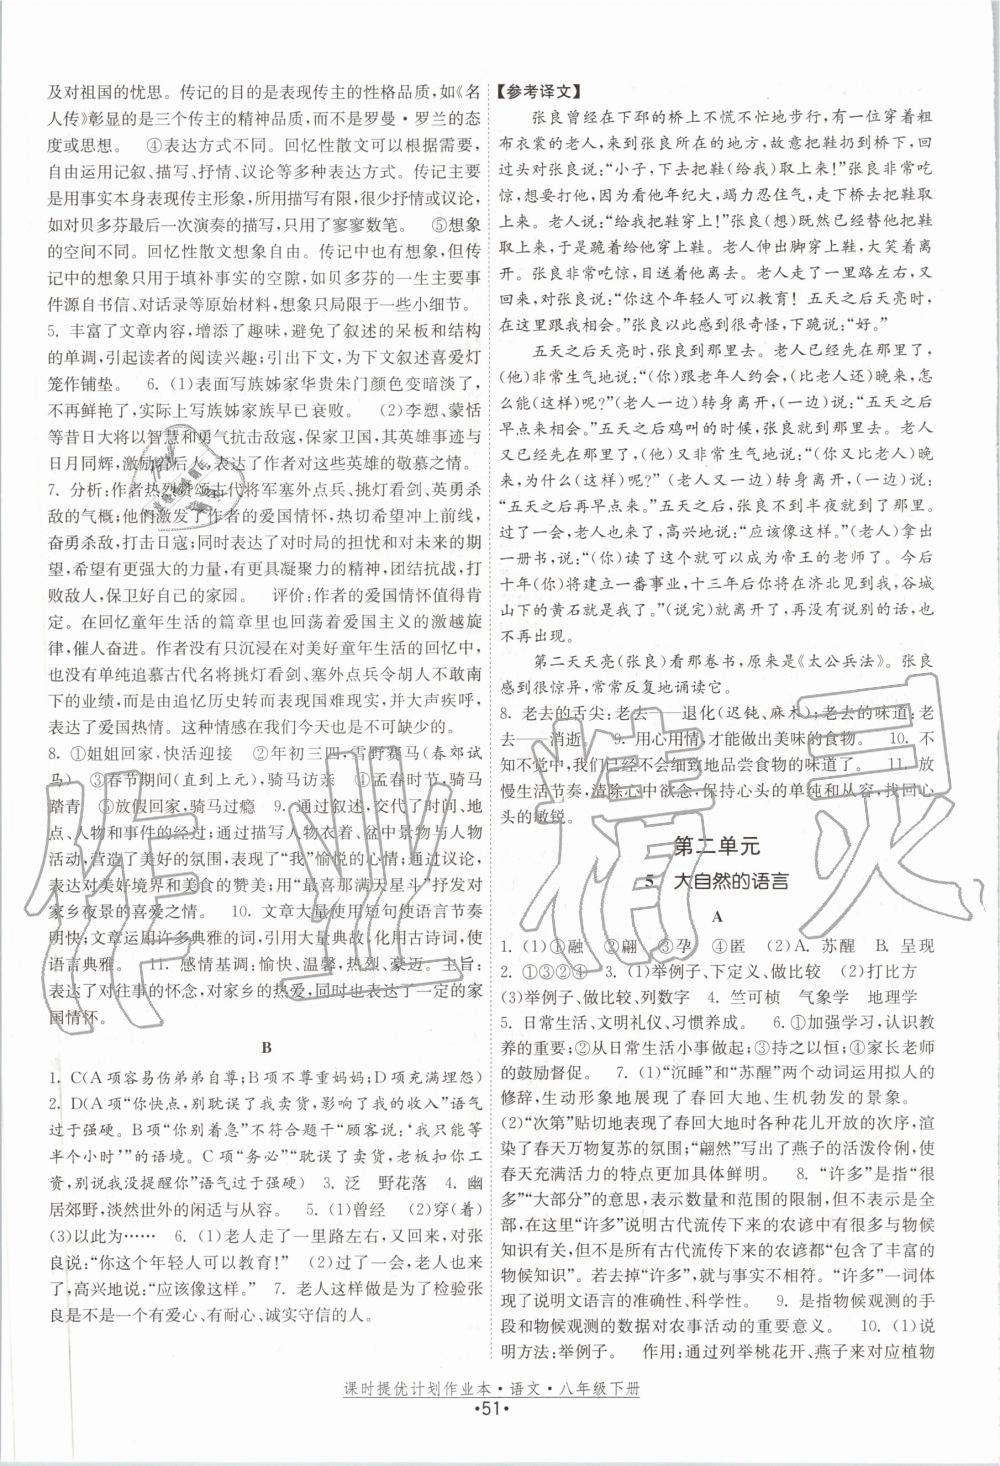 及对祖国的忧思。传记的目的是表现传主的性格品质,如《名
人传》彰显的是三个传主的精神品质,而不是罗曼·罗兰的态
度或思想。 ④表达方式不同。回忆性散文可以根据需要,
自由运用记叙、描写、抒情、议论等多种表达方式。传记主要
是用事实本身表现传主形象,所用描写有限,很少抒情或议论,
如对贝多芬最后一次演奏的描写,只用了寥寥数笔。 ⑤想象
的空间不同。回忆性散文想象自由。传记中的想象有限,传
记中的想象只用于填补事实的空隙,如贝多芬的一生主要事
件源自书信、对话录等原始材料,想象只局限于一些小细节。
5. 丰富了文章内容,增添了趣味,避免了叙述的呆板和结构
的单调,引起读者的阅读兴趣;引出下文,为下文叙述喜爱灯
笼作铺垫。 6. (1)表面写族姊家华贵朱门颜色变暗淡了,
不再鲜艳了,实际上写族姊家族早已衰败。 (2)李愬、蒙恬
等昔日大将以智慧和勇气抗击敌寇,保家卫国,其英雄事迹与
日月同辉,激励着后人,表达了作者对这些英雄的敬慕之情。
7. 分析:作者热烈赞颂古代将军塞外点兵、挑灯看剑、英勇杀
敌的气概;他们激发了作者的爱国情怀,热切希望冲上前线,
奋勇杀敌,中止日寇;同时表达了对时局的担忧和对未来的期
望,希望有更强大的力量,有更具凝聚力的精神,团结抗战,打
败敌人,保卫好自己的家园。 评价:作者的爱国情怀值得肯
定。在回忆童年生活的篇章里也回荡着爱国主义的激越旋
律,催人奋进。作者没有只沉浸在对美好童年生活的回忆中,
也没有单纯追慕古代名将挑灯看剑、塞外点兵令胡人不敢南
下的业绩,而是由追忆历史转而表现国难现实,并大声疾呼,
表达了爱国热情。这种情感在我们今天也是不可缺少的。
8. ①姐姐回家,快活迎接 ②年初三四,雪野赛马(春郊试
马) ③春节期间(直到上元),骑马访亲 ④孟春时节,骑马
踏青 ⑤放假回家,骑马过瘾 9. 通过叙述,交代了时间、地
点、人物和事件的经过;通过描写人物衣着、盆中景物与人物
活动,营造了美好的氛围,表现了“我”愉悦的心情;通过议论,
表达了对美好境界和美德的赞美;用“是为那满天星斗”抒发对
家乡夜景的喜爱之情。 10. 文章大量使用短句使语言节奏
明快;文章运用许多典雅的词,引用大量典故,化用古诗词,使
语言典雅。 11. 感情基调:愉快、温馨,热烈、豪迈。主旨:
表达了对往事的怀念,对家乡的热爱,也表达了一定的家
国情怀。
B
1. C(A项容易伤弟弟自尊;B项不尊重妈妈;D项充满埋怨)
2. D(A项“你快点,别耽误了我卖货,影响了我的收入”语气
过于强硬。B项“你别着急”不符合题干“顾客说:‘我只能等
半个小时’”的语境。C项“务必”“耽误了卖货,老板扣你工
资,别说我没提醒你”语气过于强硬) 3. 泛 野花落 4. 幽
居郊野,淡然世外的闲适与从容。 5. (1)曾经 (2)穿(着)
(3)以此为…… 6. (1)老人走了一里路左右,又回来,对张
良说:“你这个年轻人可以教育!” (2)过了一会,老人也来
了,高兴地说:“应该像这样。” 7. 老人这样做是为了检验张
良是不是一个有爱心、有耐心、诚实守信的人。
【参考译文】
张良曾经在下邳的桥上不慌不忙地步行,有一个穿着粗
布衣裳的老人,来到张良所在的地方,故意把鞋扔到桥下,回
过头对张良说:“小子,下去把鞋(给我)取上来!”张良非常吃
惊,想要打他,因为他年纪大,竭力忍住气,走下桥去把鞋取
上来。老人说:“给我把鞋穿上!”张良(想)既然已经替他把鞋
取上来,于是跪着给他穿鞋。老人伸出脚穿上鞋,大笑着离
开。张良非常吃惊,目送着老人。老人走了一里路左右,又
回来,对张良说:“你这个年轻人可以教育! 五天之后天亮时,
在这里跟我相会。”张良以此感到很奇怪,下跪说:“好。”
五天之后天亮时,张良到那里去。老人已经先在那里了,
(他)非常生气地说:“(你)跟老年人约会,(比老人还)迟到,怎
么能(这样)呢?”(老人一边)转身离开,(一边)说:“五天之后
早点来相会。”五天之后鸡叫的时候,张良就到那里去。老人
又已经先在那里了,(他)又非常生气地说:“(你又)比我晚到,
为什么(这样)呢?”(老人一边)转身离开,(一边)说:
“五天之后再早点来。”五天之后,张良不到半夜就去到那里。
过了一会,老人也来了,高兴地说:“应该像这样。”(老人)拿出
一册书,说:“(你)读了这个就可以成为帝王的老师了。今后
十年(你)将建立一番事业,十三年后你将在济北见到我,谷城
山下的黄石就是我了。”(说完)就离开了,没有说别的话,也
不再出现。
第二天天亮(张良)看那卷书,原来是《太公兵法》。张良
感到很惊异,常常反复地诵读它。
8. 老去的舌尖:老去——退化(迟钝、麻木);老去的味道:老
去——消逝 9. 用心用情,才能做出美味的食物。 10. 不
知不觉中,我们已经不会细致地品尝食物的味道了。 11. 放
慢生活节奏,清除心中欲念,保持心头的单纯和从容,找回心
头的敏锐。
第二单元
5 大自然的语言
A
1. (1)①融 ②翩 ③孕 ④匿 (2)A. 苏醒 B. 呈现
2. ①③②④ 3. (1)举例子、下定义、做比较 (2)打比方
(3)举例子、做比较、列数字 4. 竺可桢 气象学 地理学
5. 日常生活、文明礼仪、习惯养成。 6. ①加强学习,认识教
养的重要;②从日常生活小事做起;③持之以恒;④家长老师的
鼓励督促。 7. (1)“沉睡”和“苏醒”两个动词运用拟人的
修辞,生动形象地展现了春回大地、生机勃发的景象。
(2)“次第”贴切地表现了春回大地时各种花儿开放的次序,渲
染了春天万物复苏的氛围;“翩然”写出了燕子的活泼伶俐,使
春天充满活力的特点更加具体鲜明。 8. “许多”是指“很
多”“大部分”的意思,表示数量和范围的限制,但不是所有,
在这里“许多”说明古代流传下来的农谚中有很多是与物候
知识有关,而不是所有古代流传下来的农谚都“包含了丰富的
物候知识”。若去掉“许多”,就与实际不符。“许多”一词体
现了说明文语言的准确性、科学性。 9. 是指物候观测的手
段和物候观测的数据对农事活动的重要意义。 10. (1)说
明方法:举例子。 作用:通过列举桃花开、燕子来对应植物
课时提优计划作业本·语文·八年级下册
·51·
作业精灵